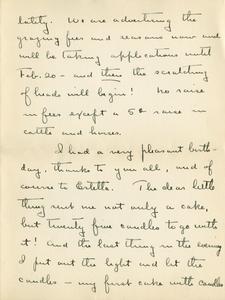 lately. We are advertising the
grazing fees and seasons now and
will be taking applications until
Feb. 20 - and then the scratching
of heads will begin! No raise
in fees except a 5¢ raise in
cattle and horses.
I had a very pleasant birth-
day, thanks to you all, and of
course to Estella. The dear little
thing sent me not only a cake,
but twenty five candles to go with
it! And the last thing in the evening
I put out the light and lit the
candles - my first cake with candles